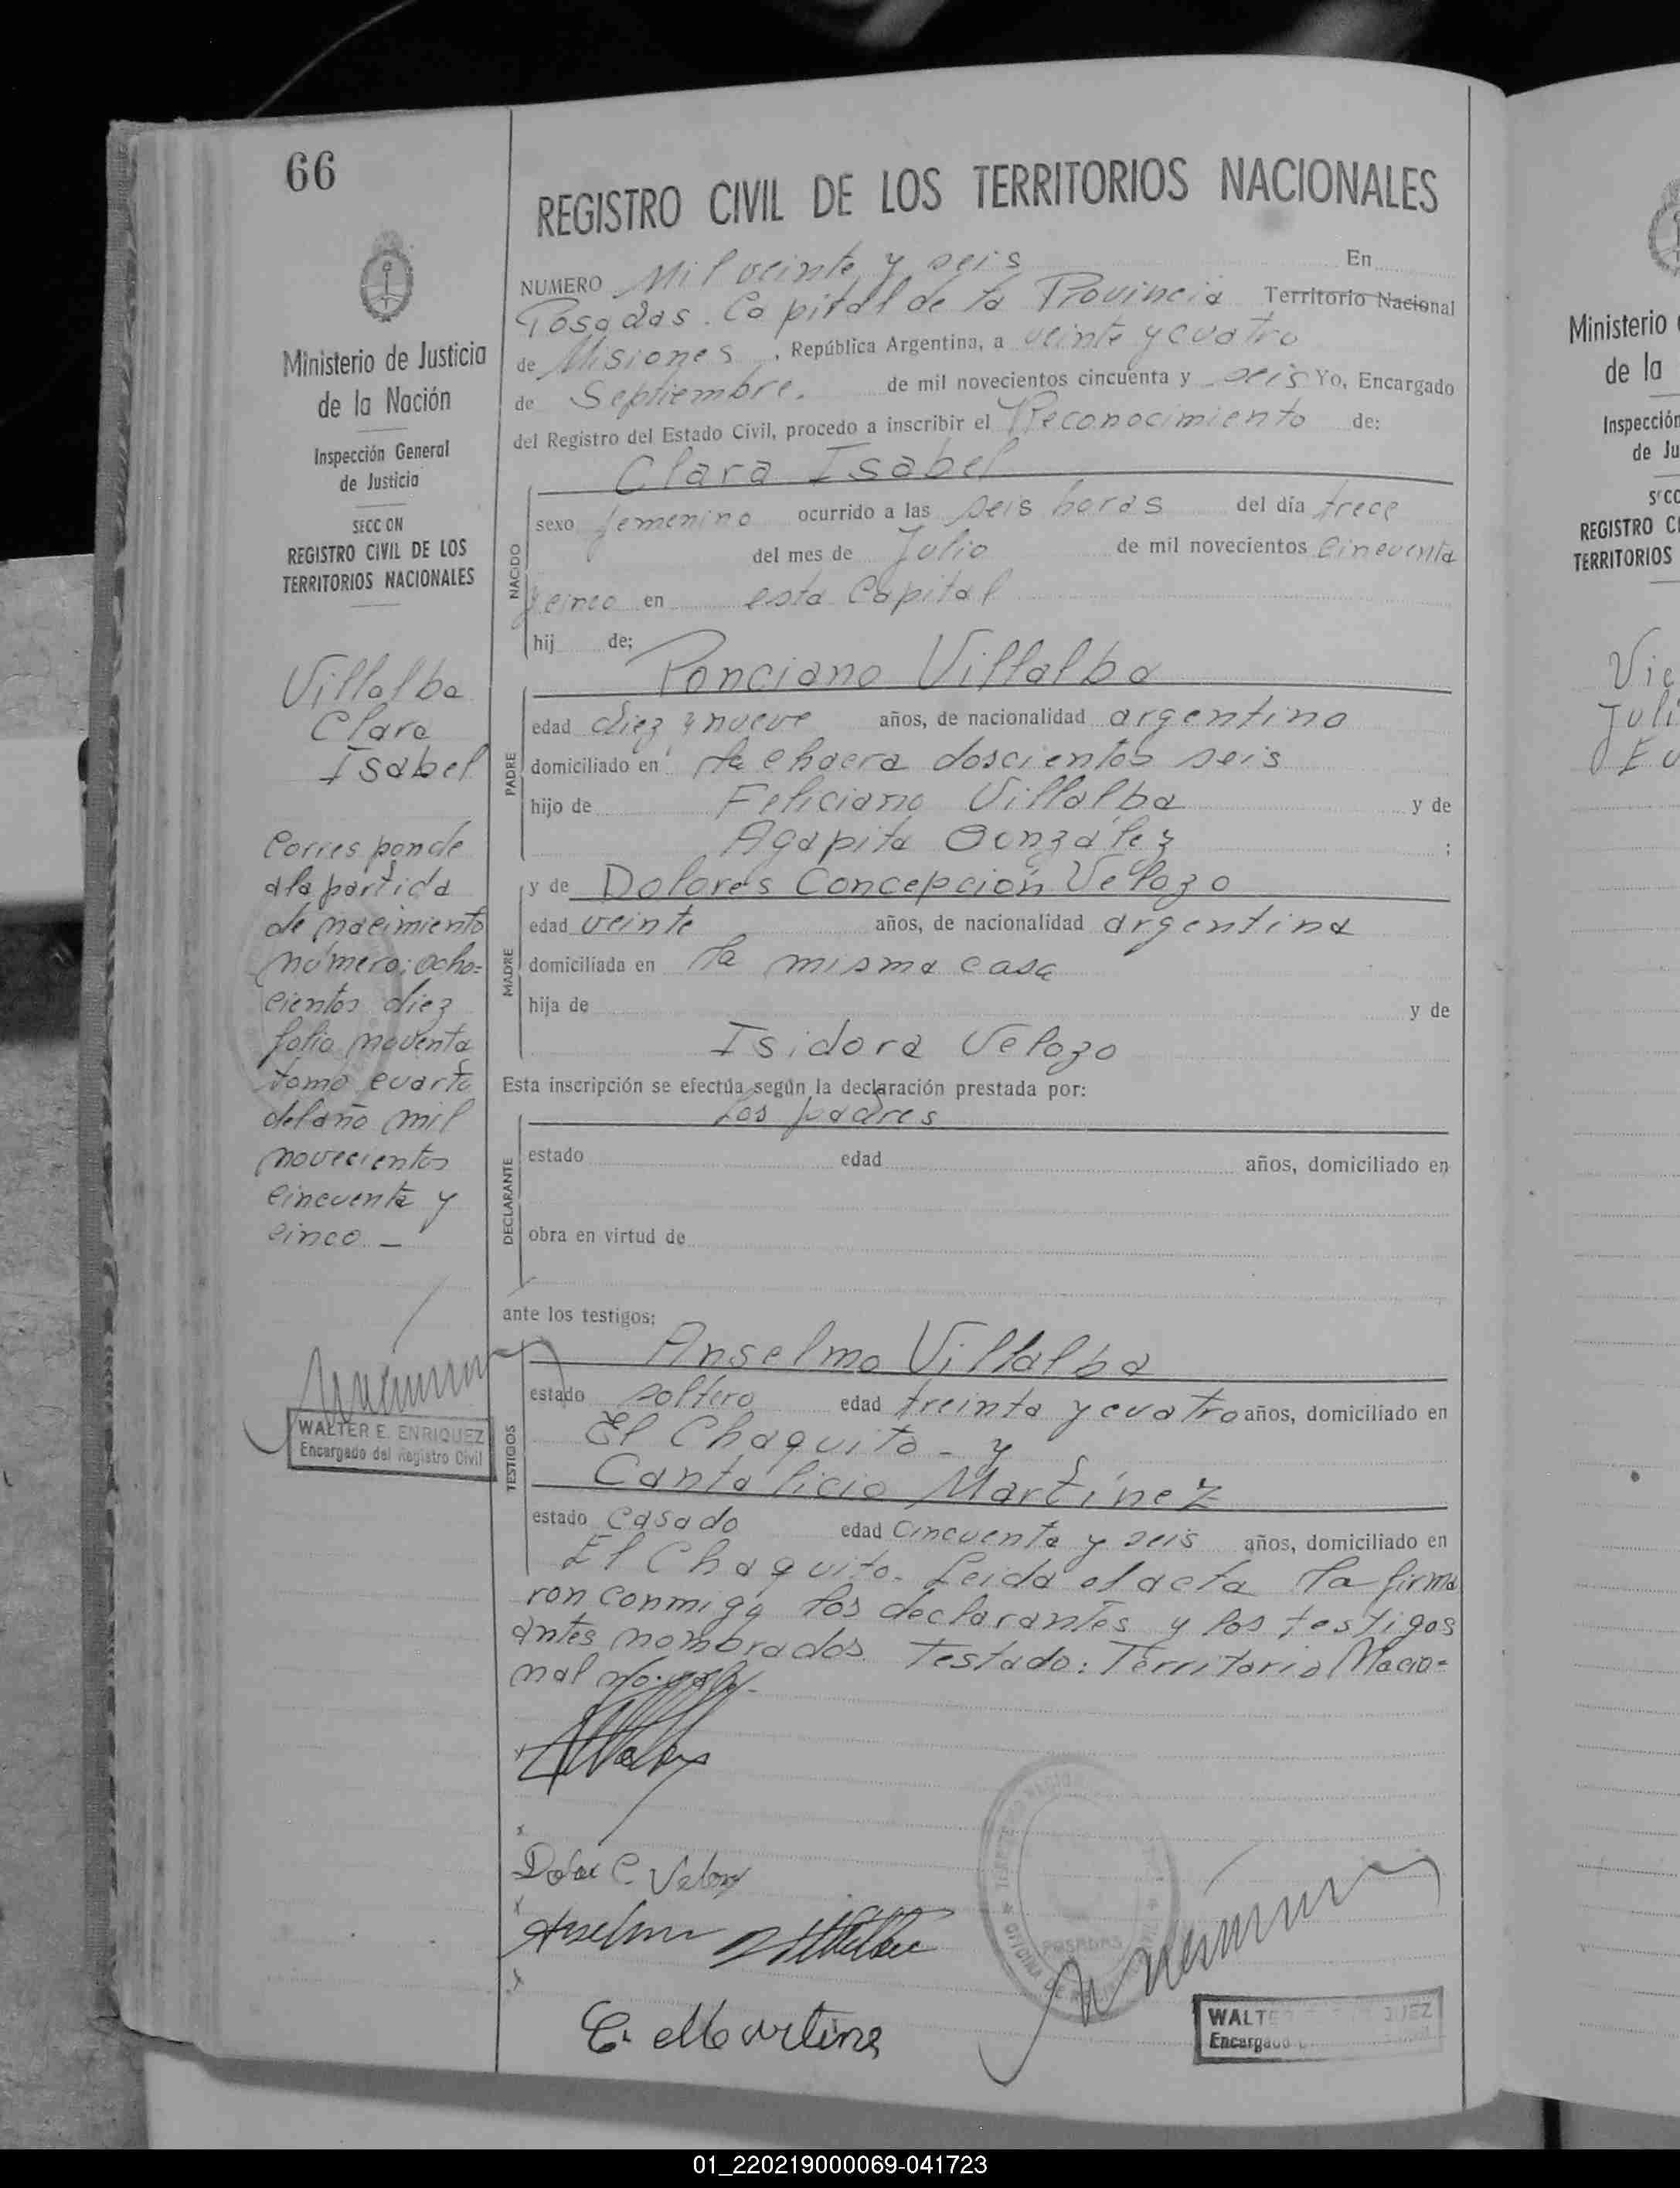 66
Ministerio de Justicia
de la Nación
Inspección General
de Justicia
SECCION
REGISTRO CIVIL DE LOS
TERRITORIOS NACIONALES
Villalba
Clara
Isabel
Corresponde
a la partida
de nacimiento
número: ocho=
cientos diez
folio noventa
tomo cuarto
del año mil
novecientos
cincuenta y
cinco —
WALTER E. ENRIQUEZ
Encargado del Registro Civil
REGISTRO CIVIL DE LOS TERRITORIOS NACIONALES
NUMERO Mil veinte y seis En
Posadas. Capital de la Provincia Territorio Nacional
de Misiones, República Argentina, a veinte y cuatro
de Septiembre. de mil novecientos cincuenta y seis Yo, Encargado
del Registro del Estado Civil, procedo a inscribir el Reconocimiento de:
Clara Isabel
NACIDO
sexo femenino ocurrido a las seis horas del día trece
del mes de Julio de mil novecientos cincuenta
y cinco en esta Capital
hij de:
Ponciano Villalba
PADRE
edad diez y nueve años, de nacionalidad argentino
domiciliado en la chacra doscientos seis
hijo de Feliciano Villalba y de
Agapita González ;
y de Dolores Concepción Velozo
MADRE
edad veinte años, de nacionalidad argentina
domiciliada en la misma casa
hija de y de
Isidora Velozo
Esta inscripción se efectúa según la declaración prestada por:
los padres
DECLARANTE
estado edad años, domiciliado en
obra en virtud de
ante los testigos:
Anselmo Villalba
TESTIGOS
estado soltero edad treinta y cuatro años, domiciliado en
El Chaquito - y
Cantalicio Martínez
estado casado edad cincuenta y seis años, domiciliado en
El Chaquito. Leida el acta la firma
ron conmigo los declarantes y los testigos
antes nombrados. Testado: Territorio Nacio=
nal no vale.-
Anselmo Villalba
C. Martinez
POSADAS
WALT JEZ
Encargado
Ministerio
de la
Inspección
de Ju
REGISTRO C
TERRITORIOS
Juli
01_220219000069-041723